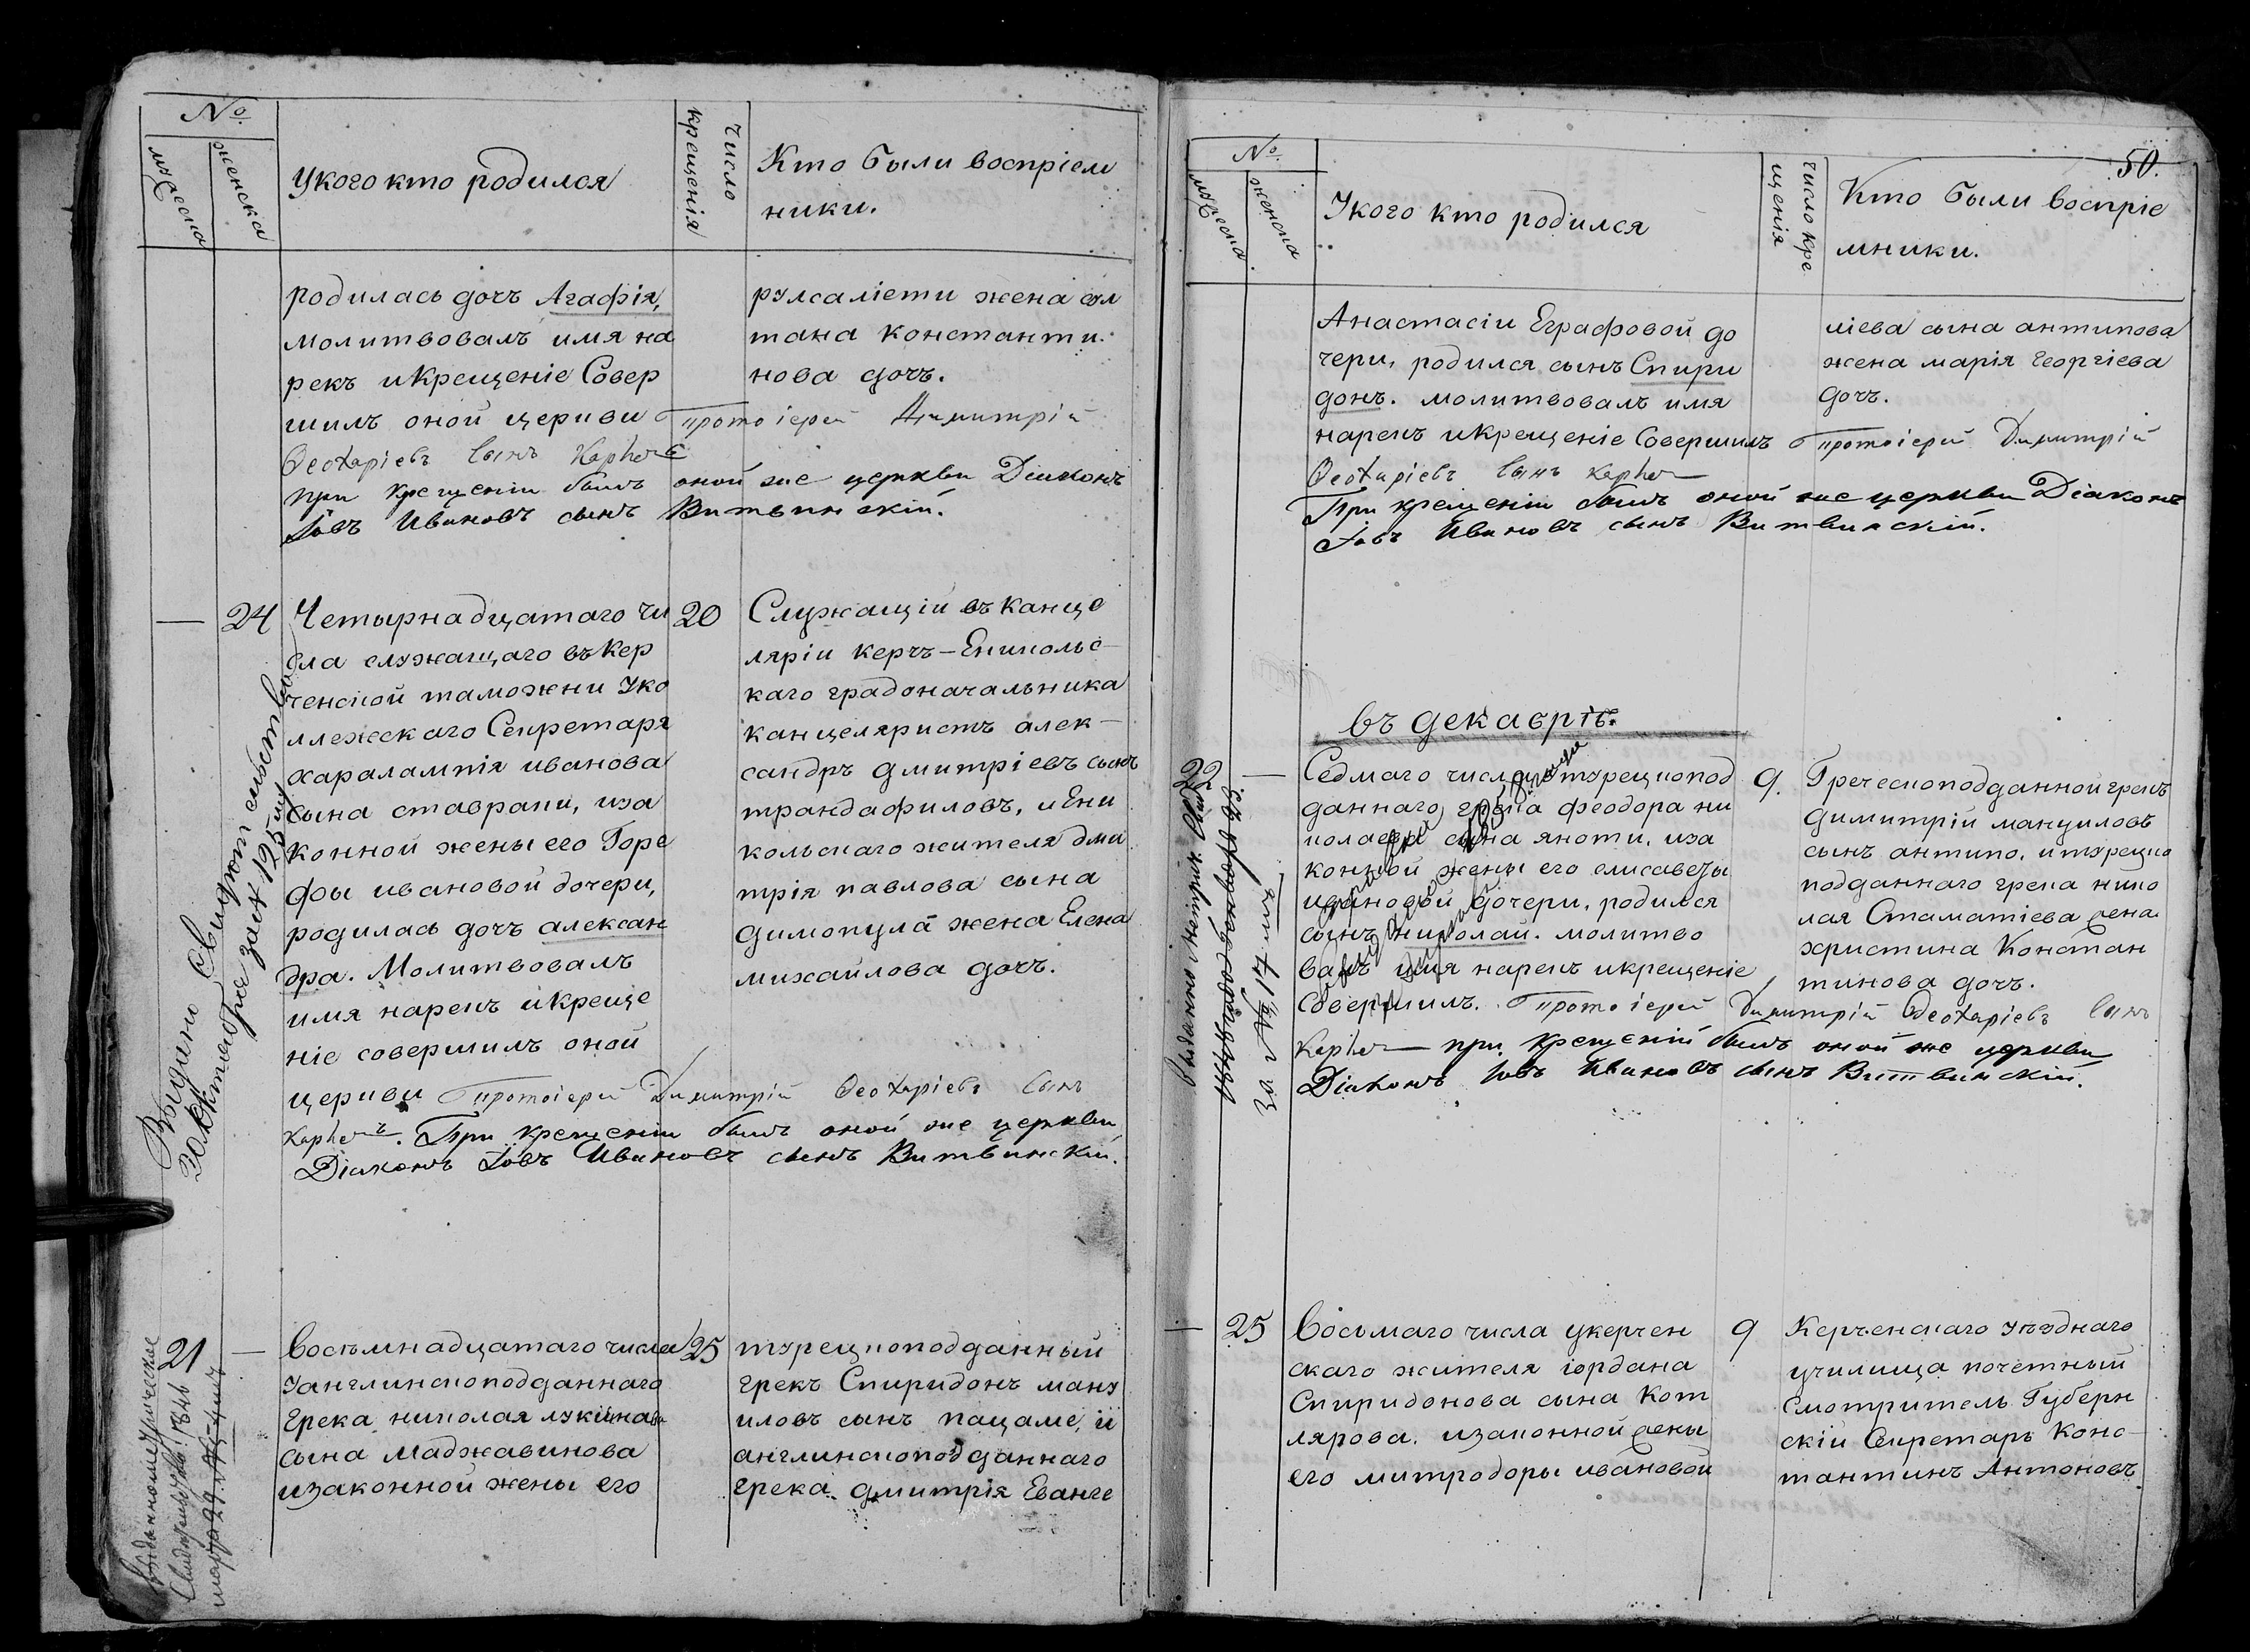 №
мужеска
женска
у кого кто родился
число
крещенія
Кто были воспріем
ники.
родилась дочъ Агафія,
молитвовалъ имя на
рекъ и крещеніе Совер
шилъ оной церкви Протоіерей Димитрій
Ѳеохаріевъ Сынъ
при крещеніи былъ оной же церкви Діаконъ
Іовъ Ивановъ сынъ Витвинскій.
жена сул
тана константи
нова дочъ.
24
Четырнадцатаго чи
сла служащаго въ Кер
ченской таможни у ко
ллежскаго Секретаря
харалампія иванова
сына ставраки, иза
конной жены его Горе
фы ивановой дочери,
родилась дочъ алексан
дра. Молитвовалъ
имя нарекъ и креще
ніе совершилъ оной
церкви Протоіерей Димитрій Ѳеохаріевъ Сынъ
При крещеніи былъ оной же церкви
Діаконъ Іовъ Ивановъ сынъ Витвинскій.
20
Служащій въ канце
ляріи керчъ-Еникольс-
каго градоначальника
канцеляристъ алек-
сандръ дмитріевъ сынъ
трандафиловъ, и Ени
кольскаго жителя дми
трія павлова сына
димопула жена Елена
михайлова дочъ.
Выдано Свидѣтельство
за № 195
21
восѣмнадцатаго числа
у англинскоподданнаго
Грека николая
сына Маджавинова
изаконной жены его
25
турецкоподданный
грекъ Спиридонъ ману
иловъ сынъ пацаме, и
англинскоподданнаго
Грека дмитрія Еванге
50.
№
мужеска
женска
У кого кто родился
число кре
щенія
Кто были воспріе
мники.
Анастасіи Еграфовой до
чери, родился сынъ Спири
донъ. молитвовалъ имя
нарекъ и крещеніе Совершилъ Протоіерей Димитрій
Ѳеохаріевъ Сынъ
При крещеніи былъ оной же церкви Діаконъ
Іовъ Ивановъ сынъ Витвинскій.
ліева сына антипова
жена марія георгіева
дочъ.
въ декабрѣ.
22
Седмаго числа у турецкопод
даннаго грека феодора ни
колаева сына яноти, иза
конной жены его елисаветы
ивановой дочери, родился
сынъ николай. молитво
валъ имя нарекъ и крещеніе
совершилъ. Протоіерей Димитрій Ѳеохаріевъ Сынъ
при крещеніи былъ оной же церкви
Діаконъ Іовъ Ивановъ сынъ Витвинскій.
9.
Греческоподданной грекъ
димитрій мануиловъ
сынъ антипо, и турецко
подданнаго грека нико
лая Стаматіева жена
христина Констан
тинова дочъ.
25
Восьмаго числа у керчен
скаго жителя іордана
Спиридонова сына Кот
лярова, изаконной жены
его митродоры ивановой
9
Керченскаго уѣзднаго
училища почетный
Смотритель Губерн
скій Секретаръ Конс-
тантинъ Антоновъ